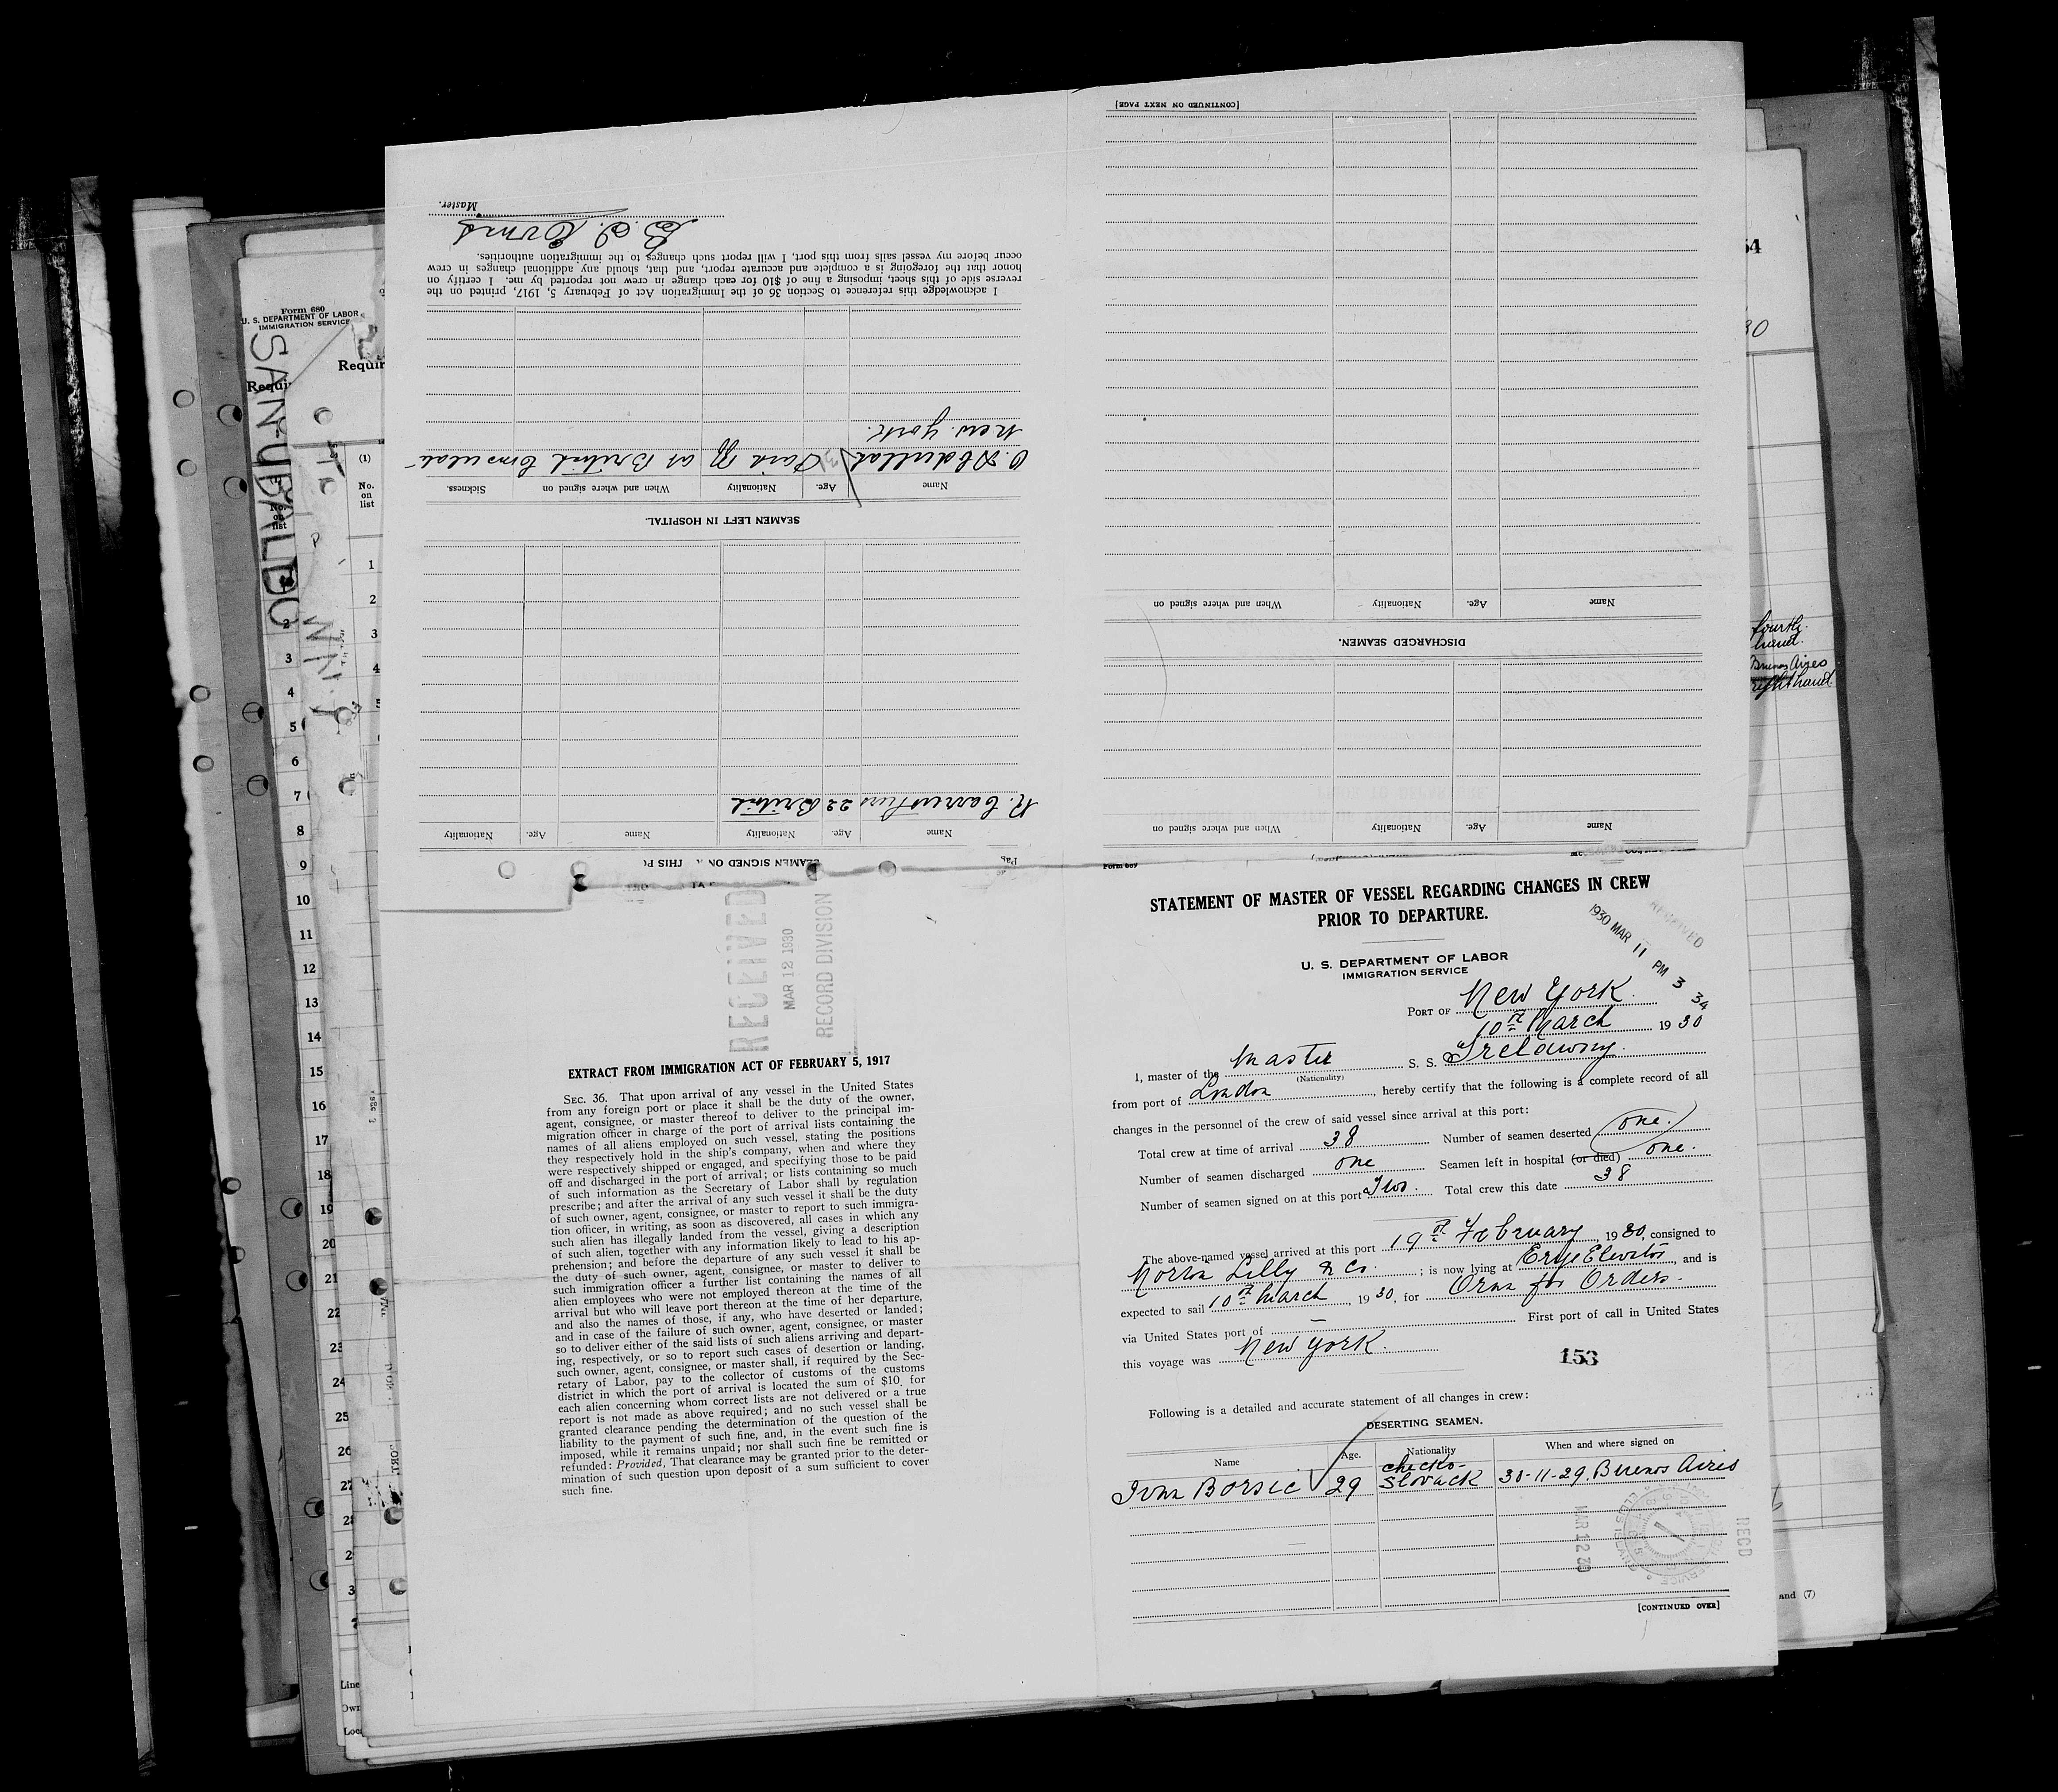 STATEMENT OF MASTER OF VESSEL REGARDING CHANGES IN CREW
PRIOR TO DEPARTURE.
U. S. DEPARTMENT OF LABOR
IMMIGRATION SERVICE
RECEIVED
1930 MAR 11 PM 3 34
PORT OF New York.
10th March 1930
I, master of the Master S. S. Trelawny.
(Nationality)
from port of London, hereby certify that the following is a complete record of all
changes in the personnel of the crew of said vessel since arrival at this port:
Total crew at time of arrival 38 Number of seamen deserted one.
Number of seamen discharged one Seamen left in hospital (or died) one.
Number of seamen signed on at this port Two. Total crew this date 38
The above-named vessel arrived at this port 19th February, 1930, consigned to
Norton Lilly & Co. ; is now lying at, and is
expected to sail 10th March, 1930, for for Orders.
via United States port of — First port of call in United States
this voyage was New York.
153
Following is a detailed and accurate statement of all changes in crew:
DESERTING SEAMEN.
Name Age. Nationality When and where signed on
Ivan Borsic 29 Checko-
Slovack 30-11-29. Buenos Aires
MAR 12 30
RECD
[CONTINUED OVER]
RECEIVED
MAR 12 1930
RECORD DIVISION
EXTRACT FROM IMMIGRATION ACT OF FEBRUARY 5, 1917
SEC. 36. That upon arrival of any vessel in the United States
from any foreign port or place it shall be the duty of the owner,
agent, consignee, or master thereof to deliver to the principal im-
migration officer in charge of the port of arrival lists containing the
names of all aliens employed on such vessel, stating the positions
they respectively hold in the ship's company, when and where they
were respectively shipped or engaged, and specifying those to be paid
off and discharged in the port of arrival; or lists containing so much
of such information as the Secretary of Labor shall by regulation
prescribe; and after the arrival of any such vessel it shall be the duty
of such owner, agent, consignee, or master to report to such immigra-
tion officer, in writing, as soon as discovered, all cases in which any
such alien has illegally landed from the vessel, giving a description
of such alien, together with any information likely to lead to his ap-
prehension; and before the departure of any such vessel it shall be
the duty of such owner, agent, consignee, or master to deliver to
such immigration officer a further list containing the names of all
alien employees who were not employed thereon at the time of the
arrival but who will leave port thereon at the time of her departure,
and also the names of those, if any, who have deserted or landed;
and in case of the failure of such owner, agent, consignee, or master
so to deliver either of the said lists of such aliens arriving and depart-
ing, respectively, or so to report such cases of desertion or landing,
such owner, agent, consignee, or master shall, if required by the Sec-
retary of Labor, pay to the collector of customs of the customs
district in which the port of arrival is located the sum of $10 for
each alien concerning whom correct lists are not delivered or a true
report is not made as above required; and no such vessel shall be
granted clearance pending the determination of the question of the
liability to the payment of such fine, and, in the event such fine is
imposed, while it remains unpaid; nor shall such fine be remitted or
refunded: Provided, That clearance may be granted prior to the deter-
mination of such question upon deposit of a sum sufficient to cover
such fine.
Name Age. Nationality When and where signed on
DISCHARGED SEAMEN.
Name Age. Nationality When and where signed on
[CONTINUED ON NEXT PAGE]
SEAMEN SIGNED ON
Name Age. Nationality Name Age. Nationality
R. Carruthers 22 British
SEAMEN LEFT IN HOSPITAL.
Name Age. Nationality When and where signed on Sickness.
O. Abdullah Paid off at British Consulate
New York.
I acknowledge this reference to Section 36 of the Immigration Act of February 5, 1917, printed on the
reverse side of this sheet, imposing a fine of $10 for each change in crew not reported by me. I certify on
honor that the foregoing is a complete and accurate report, and that, should any additional changes in crew
occur before my vessel sails from this port, I will report such changes to the immigration authorities.
Master.
Form 680
U. S. DEPARTMENT OF LABOR
IMMIGRATION SERVICE
SAN UBALDO
(1)
No.
on
list
fourth
hand.
Buenos Aires
right hand.
and (7)